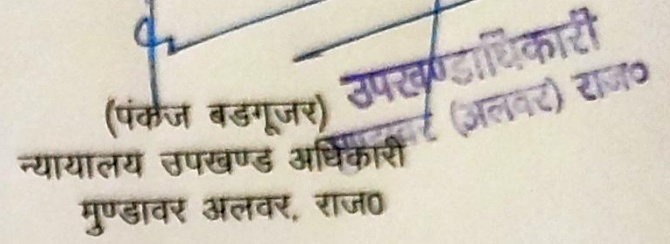 (पंकज बडगूजर)
न्यायालय उपखण्ड अधिकारी
मुण्डावर अलवर, राज0
उपखण्डाधिकारी
(अलवर) राज०